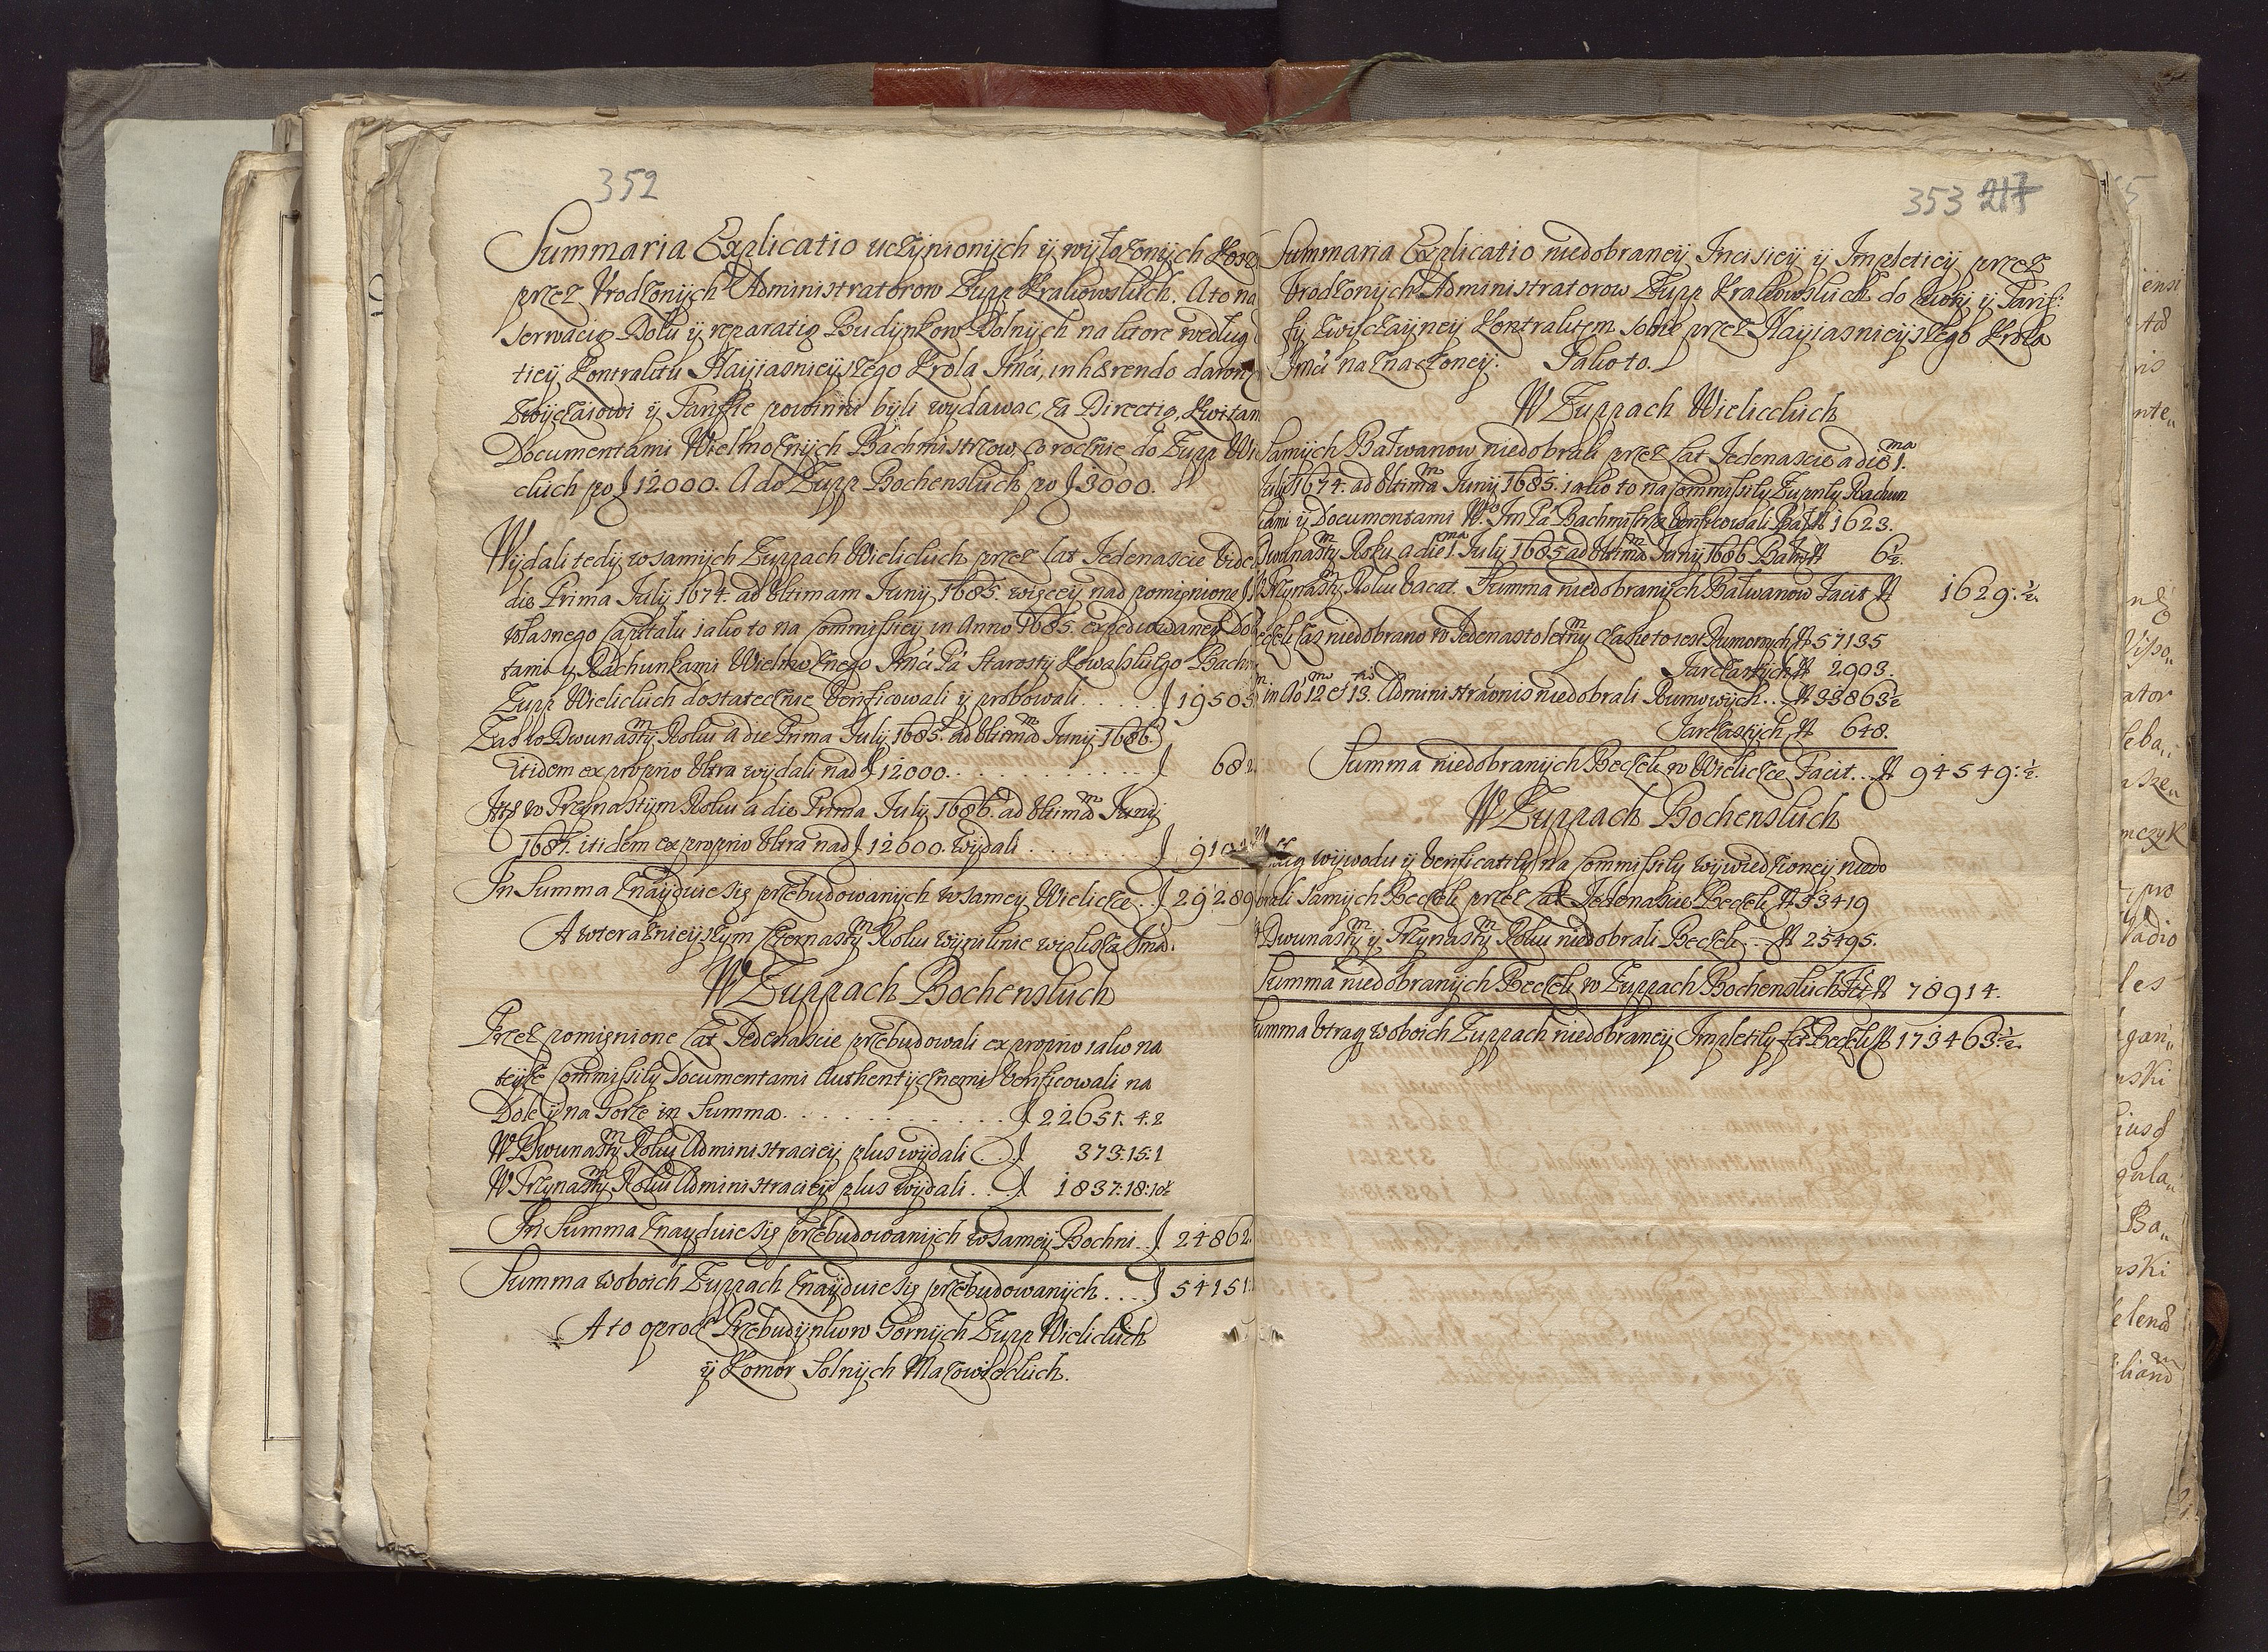 352
Summaria Explicatio uczÿnionÿch ÿ wÿłożonÿch Kosz
przez Vrodzonÿch Administratorow Żupp Krakowskich. A to na
serwacią Dołu ÿ reparatią Budÿnkow Solnÿch na litore według
ticÿ Kontraktu Naÿiasnieÿszego Krola Jmći, inhærendo dawn
zwÿczaiowi ÿ Tariffie powinni bÿli wÿdawac, za Directią, Kwitam
Documentami Wielmożnÿch Bachmistrzow, co rocznie do Żupp Wi
ckich po ƒ 12000. A do Żupp Bochenskich po ƒ 3000.
Wÿdali tedÿ w samÿch Żuppach Wielickich przez lat Jedenascie
die Prima Julÿ 1674. ad Vltimam Junÿ 1685. więceÿ nad pomienione
własnego Capitału iako to na Commissieÿ in Anno 1685. expediowaneÿ Do
tami ÿ Rachunkami Wielmożnego Jmći Pá Starostÿ Kowalskiego Bach
Żupp Wielickich dostatecznie Verificowali ÿ probowali . . . . . ƒ 19505
Zas w Dwunastÿm Roku a die Prima Julÿ 1685. ad Vltimam Junÿ 1686.
itidem ex proprio Vltra wÿdali nad ƒ 12000. . . . . . . . . ƒ 682
w Trzÿnastÿm Roku a die Prima Julÿ 1686. ad Vltimam Junÿ
1687. itidem ex proprio Vltra nad ƒ 12000. wÿdali . . . . . . ƒ 910
In Summa znaÿduie się przebudowanÿch w sameÿ Wieliczce . . ƒ 29289
A w teraznieÿszÿm Czternastÿm Roku
W Żuppach Bochenskich
Przez pomienione lat Jedenascie przebudowali ex proprio iako na
teÿże Commissiÿ Documentami Authentÿcznemi Verificowali na
Dole ÿ na Gorze in Summa . . . . . . . . . . ƒ 22651. 4. 2
W Dwunastÿm Roku Administracieÿ plus wÿdali . . ƒ 373:15:1
W Trzÿnastÿm Roku Administracieÿ plus wÿdali . . ƒ 1837:18:10½
In Summa znaÿduie się przebudowanÿch w sameÿ Bochni . . ƒ 24862
Summa w oboich Żuppach znaÿduie się przebudowanÿch . . . . ƒ 54151
A to oprocz Przebudÿnkow Gornÿch Żupp Wielickich
ÿ Komor Solnÿch Mazowieckich.
353 217
Summaria Explicatio niedobraneÿ Incisieÿ ÿ Impletieÿ przez
Vrodzonÿch Administratorow Żupp Krakowskich do Liczbÿ ÿ Tarif:
fÿ zwÿczaÿneÿ Kontraktem sobie przez Naÿiasnieÿszego Krola
Jmći naznaczoneÿ. Jako to.
W Żuppach Wielicckich
Samÿch Bałwanow niedobrali przez lat Jedenascie a die 1.ma
Julÿ 1674. ad Vltimam Junÿ 1685. iako to na Commissiÿ Żupnÿ Rachun
kami ÿ Documentami W.o Jm Pá Bachmistrza Verificowali Bałw. N 1623.
Dwunastÿm Roku a die 1.ma Julÿ 1685 ad Vltimam Junÿ 1686 Bałw. N 6½.
Trzÿnastÿm Roku Vacat. Summa niedobranÿch Bałwanow Facit N 1629:½.
Beczek zas niedobrano w Jedenastoletnÿm czasie to iest Rumowÿch N 57135
Jarczastÿch N 2903.
in Ao 12mo et 13.tio Administrationis niedobrali Rumowÿch . . N 33863½
Jarczastÿch N 648.
Summa niedobranÿch Beczek w Wieliczce Facit . . N 94549:½.
W Żuppach Bochenskich
ług wÿwodu ÿ Verificatiÿ na Commissiÿ wÿwiedzioneÿ niedo
brali samÿch Beczek przez lat Jedenascie Beczek N 53419
Dwunastÿm ÿ Trzÿnastÿm Roku niedobrali Beczek . . N 25495.
Summa niedobranÿch Beczek w Żuppach Bochenskich Fct N 78914.
Summa Vtraq w oboich Żuppach niedobraneÿ Impletiÿ fct Beczek N 173463:½.